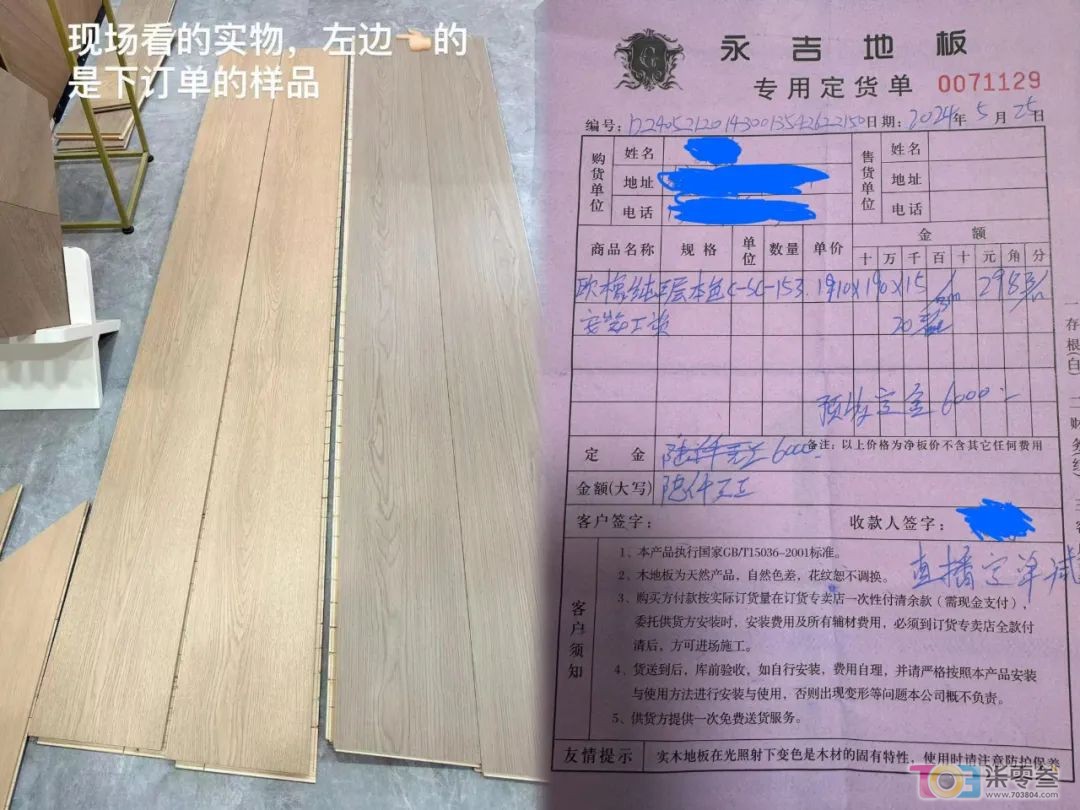 现场看的实物，左边👈🏻的
是下订单的样品
永吉地板
专用定货单 0071129
编号： 日期：2024年5月25日
购货单位 姓名 售货单位 姓名
地址 地址
电话 电话
商品名称 规格 单位 数量 单价 金额
十万千百十元角分
欧橡纯三层本色 C-SC-153 1910×190×15 298元/㎡
安装工资 20元/㎡
预收定金6000
定金 陆仟元正 6000 备注：以上价格为净板价不含其它任何费用
金额(大写) 陆仟元正
客户签字： 收款人签字：
直播定单试
客户须知
1、本产品执行国家GB/T15036-2001标准。
2、木地板为天然产品，自然色差，花纹恕不调换。
3、购买方付款按实际订货量在订货专卖店一次性付清余款（需现金支付），
委托供货方安装时，安装费用及所有辅材费用，必须到订货专卖店全款付
清后，方可进场施工。
4、货送到后，库前验收，如自行安装，费用自理，并请严格按照本产品安装
与使用方法进行安装与使用，否则出现变形等问题本公司概不负责。
5、供货方提供一次免费送货服务。
友情提示 实木地板在光照射下变色是木材的固有特性，使用时请注意防护保养
一存根(自)
二财务(红)
三客
703 米零叁
www.703804.com